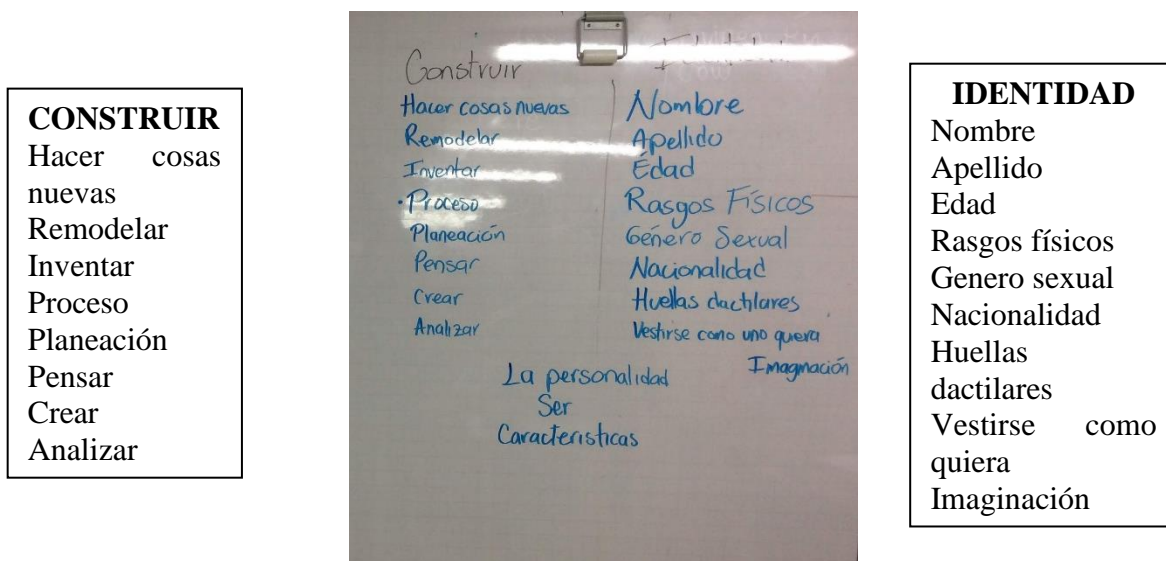 CONSTRUIR
Hacer cosas
nuevas
Remodelar
Inventar
Proceso
Planeación
Pensar
Crear
Analizar
Construir
Hacer cosas nuevas
Remodelar
Inventar
• Proceso
Planeación
Pensar
Crear
Analizar
Nombre
Apellido
Édad
Rasgos Físicos
Género Sexual
Nacionalidad
Huellas dactilares
Vestirse como uno quiera
Imaginación
La personalidad
Ser
Caracteristicas
IDENTIDAD
Nombre
Apellido
Edad
Rasgos físicos
Genero sexual
Nacionalidad
Huellas
dactilares
Vestirse como
quiera
Imaginación